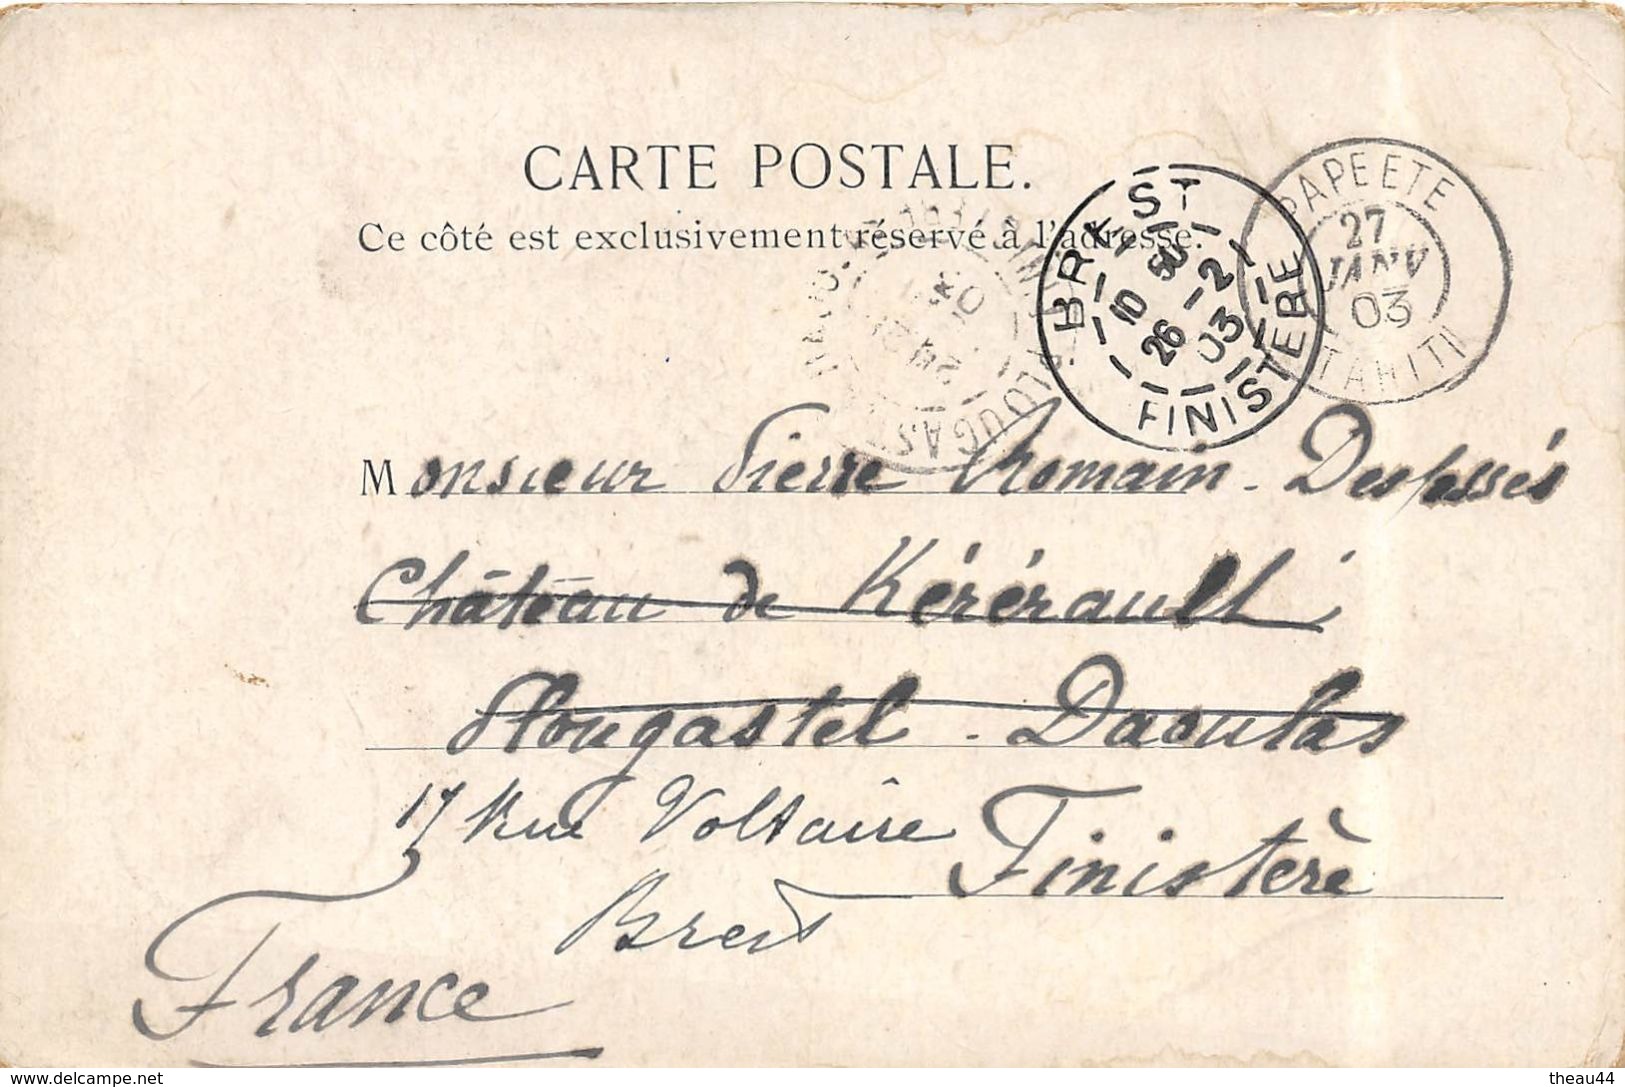 CARTE POSTALE.
Ce côté est exclusivement réservé à l'adresse.
BREST
10 50
26 - 2
03
FINISTERE
PAPEETE
27
JANV
03
TAHITI
Monsieur Pierre Romain - Despossés
Château de Kérérault
Plougastel - Daoulas
17 Rue Voltaire Finistère
Brest
France
www.delcampe.net
theau44